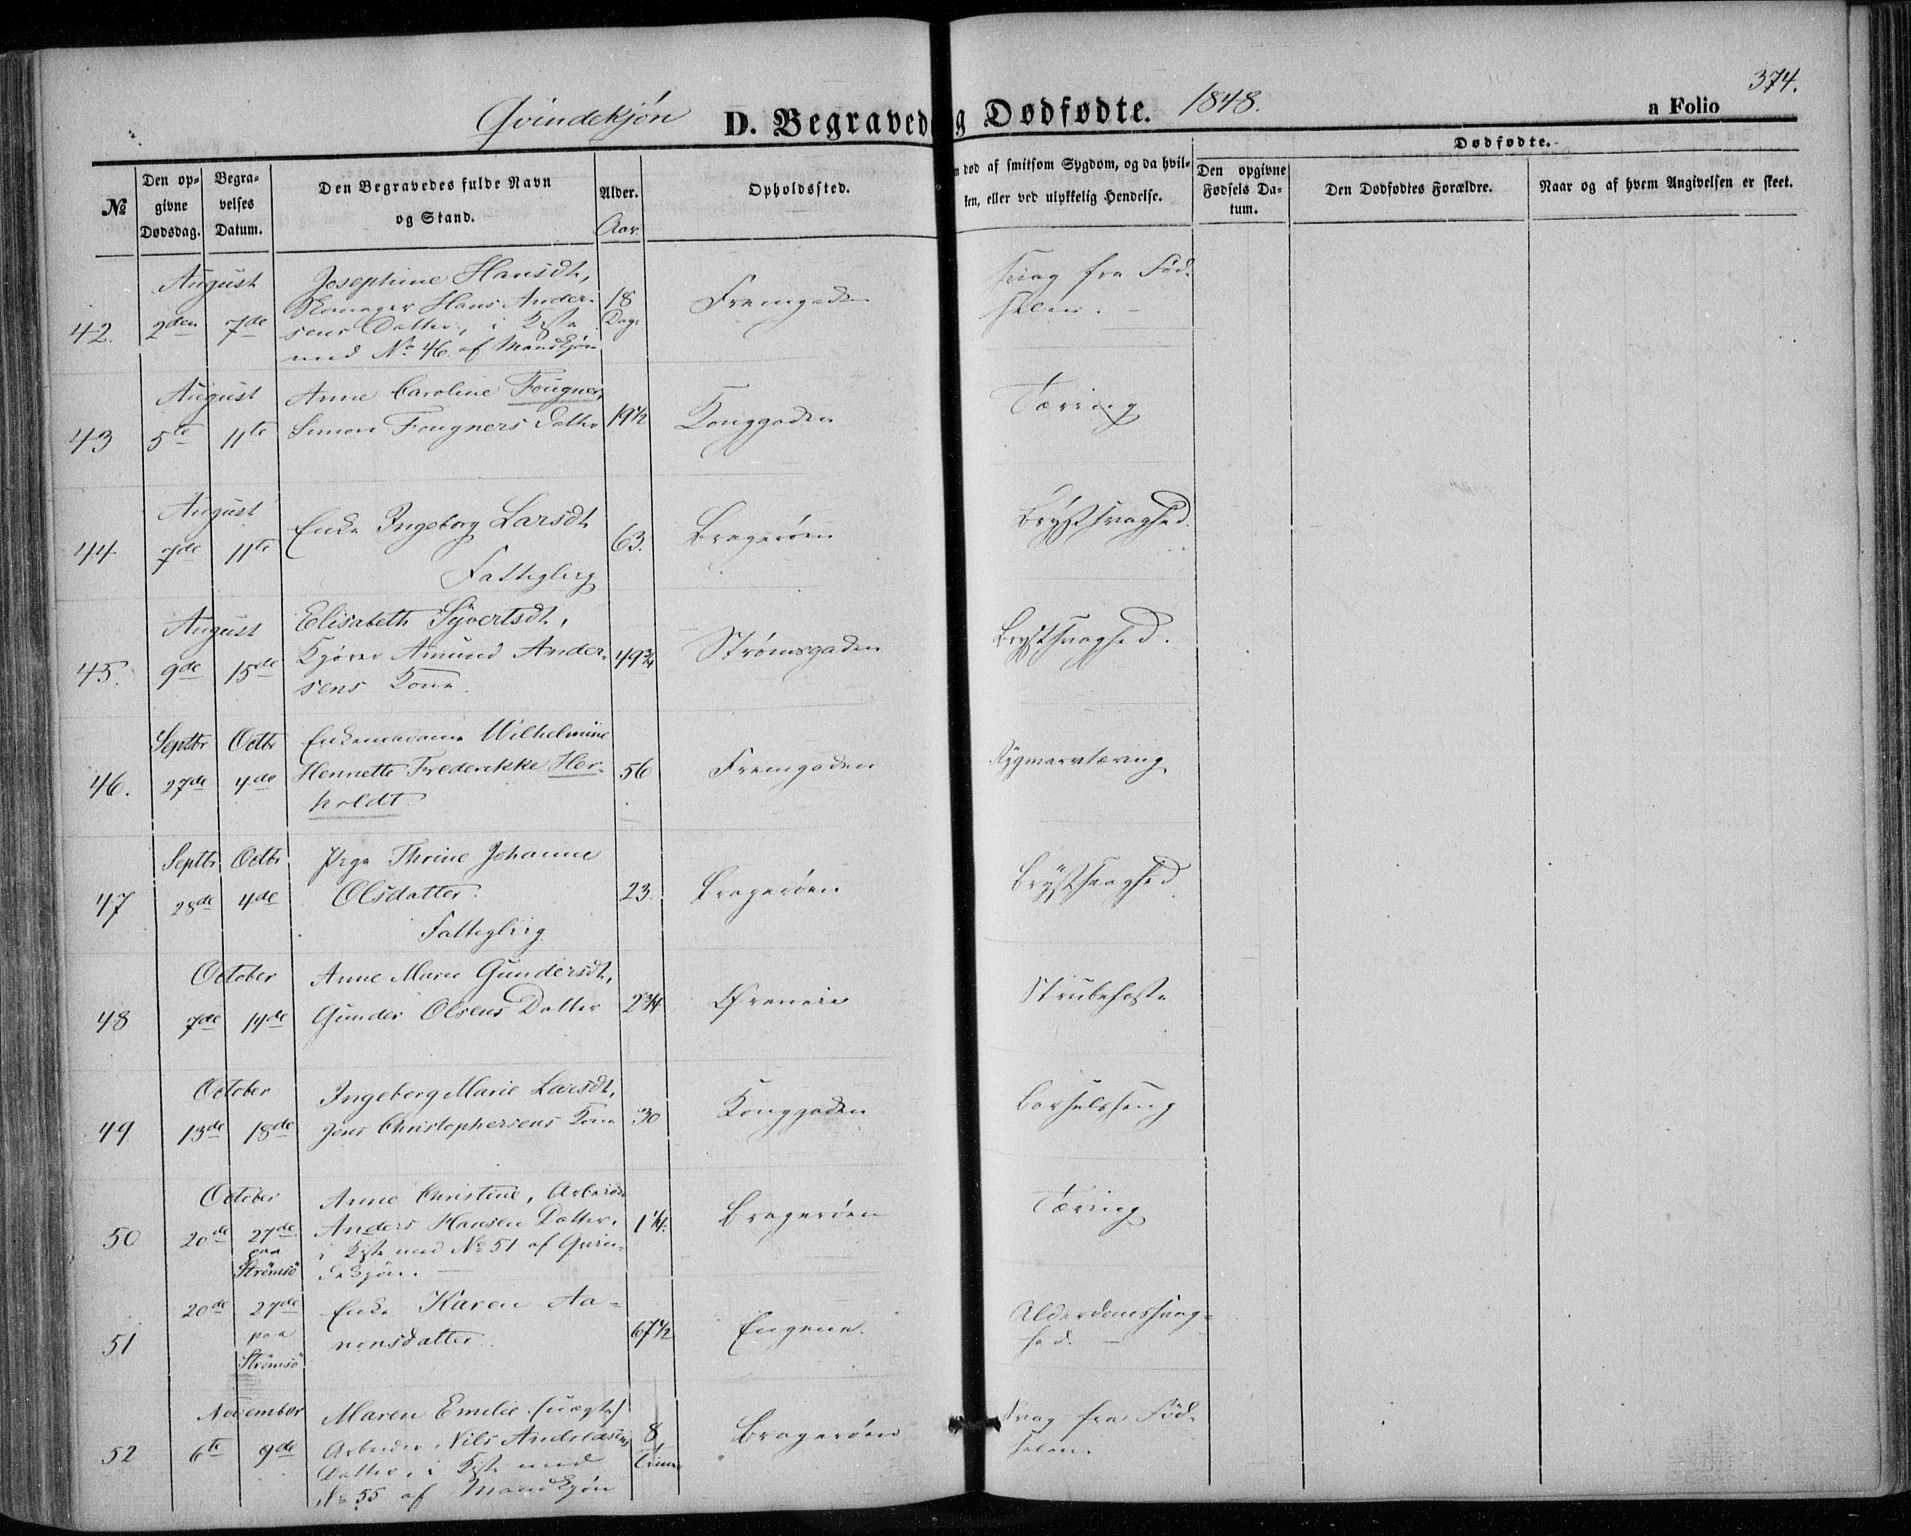 374.
Qvindekjøn D. Begravede og Dødfødte. 1848. a Folio
Dødfødte.
№
Den opgivne Dødsdag.
Begravelses Datum.
Den Begravedes fulde Navn og Stand.
Alder.
Aar.
Opholdssted.
død af smitsom Sygdom, og da hvilken, eller ved ulykkelig Hendelse.
Den opgivne Fødsels Datum.
Den Dødfødtes Forældre.
Naar og af hvem Angivelsen er skeet.
August Josephine Hansdt,
Skomager Hans Ander- 18 Fremgaden Svag fra Fød-
42. 2den 7de sens Datter, i Kiste Dage selen.
med No 46 af Mandkjøn
August Anne Caroline Fougner,
43 5te 11te Simon Fougners Datter 19½ Konggaden Tæring
August Enke Ingeborg Larsdt
44 7de 11te 63. Bragerøen Brystsvaghed.
Fattiglig
August Elisabeth Syvertsdt,
45. 9de 15de Kjører Amund Ander- 49¾ Strømsgaden Brystsvaghed.
sens Kone.
Septbr Octbr Enkemadame Wilhelmine
46. 27de 4de Hennette Frederikke Her- 56 Fremgaden Rygmarvtæring
holdt.
Septbr Octbr Pige Thrine Johanne
47 28de 4de Olsdatter. 23. Bragerøen Brystsvaghed
Fattiglig
October Anne Marie Gundersdt,
48 7de 14de Gunder Olsens Datter 2¾ Øreneie Strubehoste
October Ingeborg Marie Larsdt,
49 13de 18de Jens Christophersens Kone 30 Konggaden Barselsseng
October Anne Christine, Arbeider
50 20de 27de Anders Hansen Datter, 1¼. Bragerøen Tæring
paa i Kiste med No 51 af Qvin-
Strømsö dekjøn.
20de 27de Enke Karen Aa-
51 paa nensdatter. 67½ Engene. Alderdomssvag-
Strømsö hed.
November Maren Emilie (uægte)
52 6te 9de Arbeider Nils Andersens 8 Bragerøen Svag fra Fød-
Datter, i Kiste med Timer selen.
No 55 af Mandkjøn